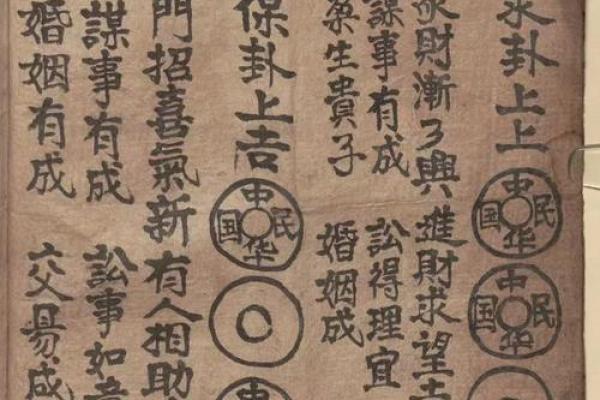 卦上上
中民华国
中民华国
財漸了興進財求望
謀事有成 訟得理宜
生貴子 婚姻成
保卦上吉
中民华国
門招喜氣新有人相助
謀事有成 訟事如意
婚姻有成 六父易成